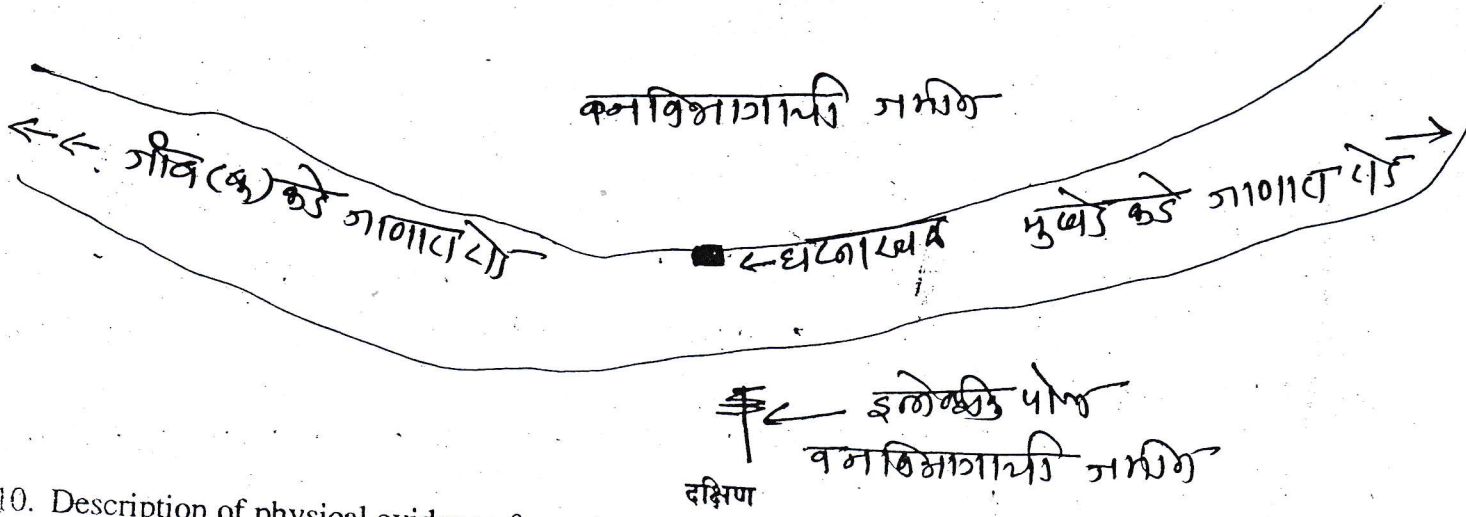 वनविभागाची जमीन
←← गोंव (बु) कडे जाणारा रोड
← घटनास्थळ
मुखेड कडे जाणारा रोड →
← इलेक्ट्रीक पोल
वनविभागाची जमीन
दक्षिण
10. Description of physical